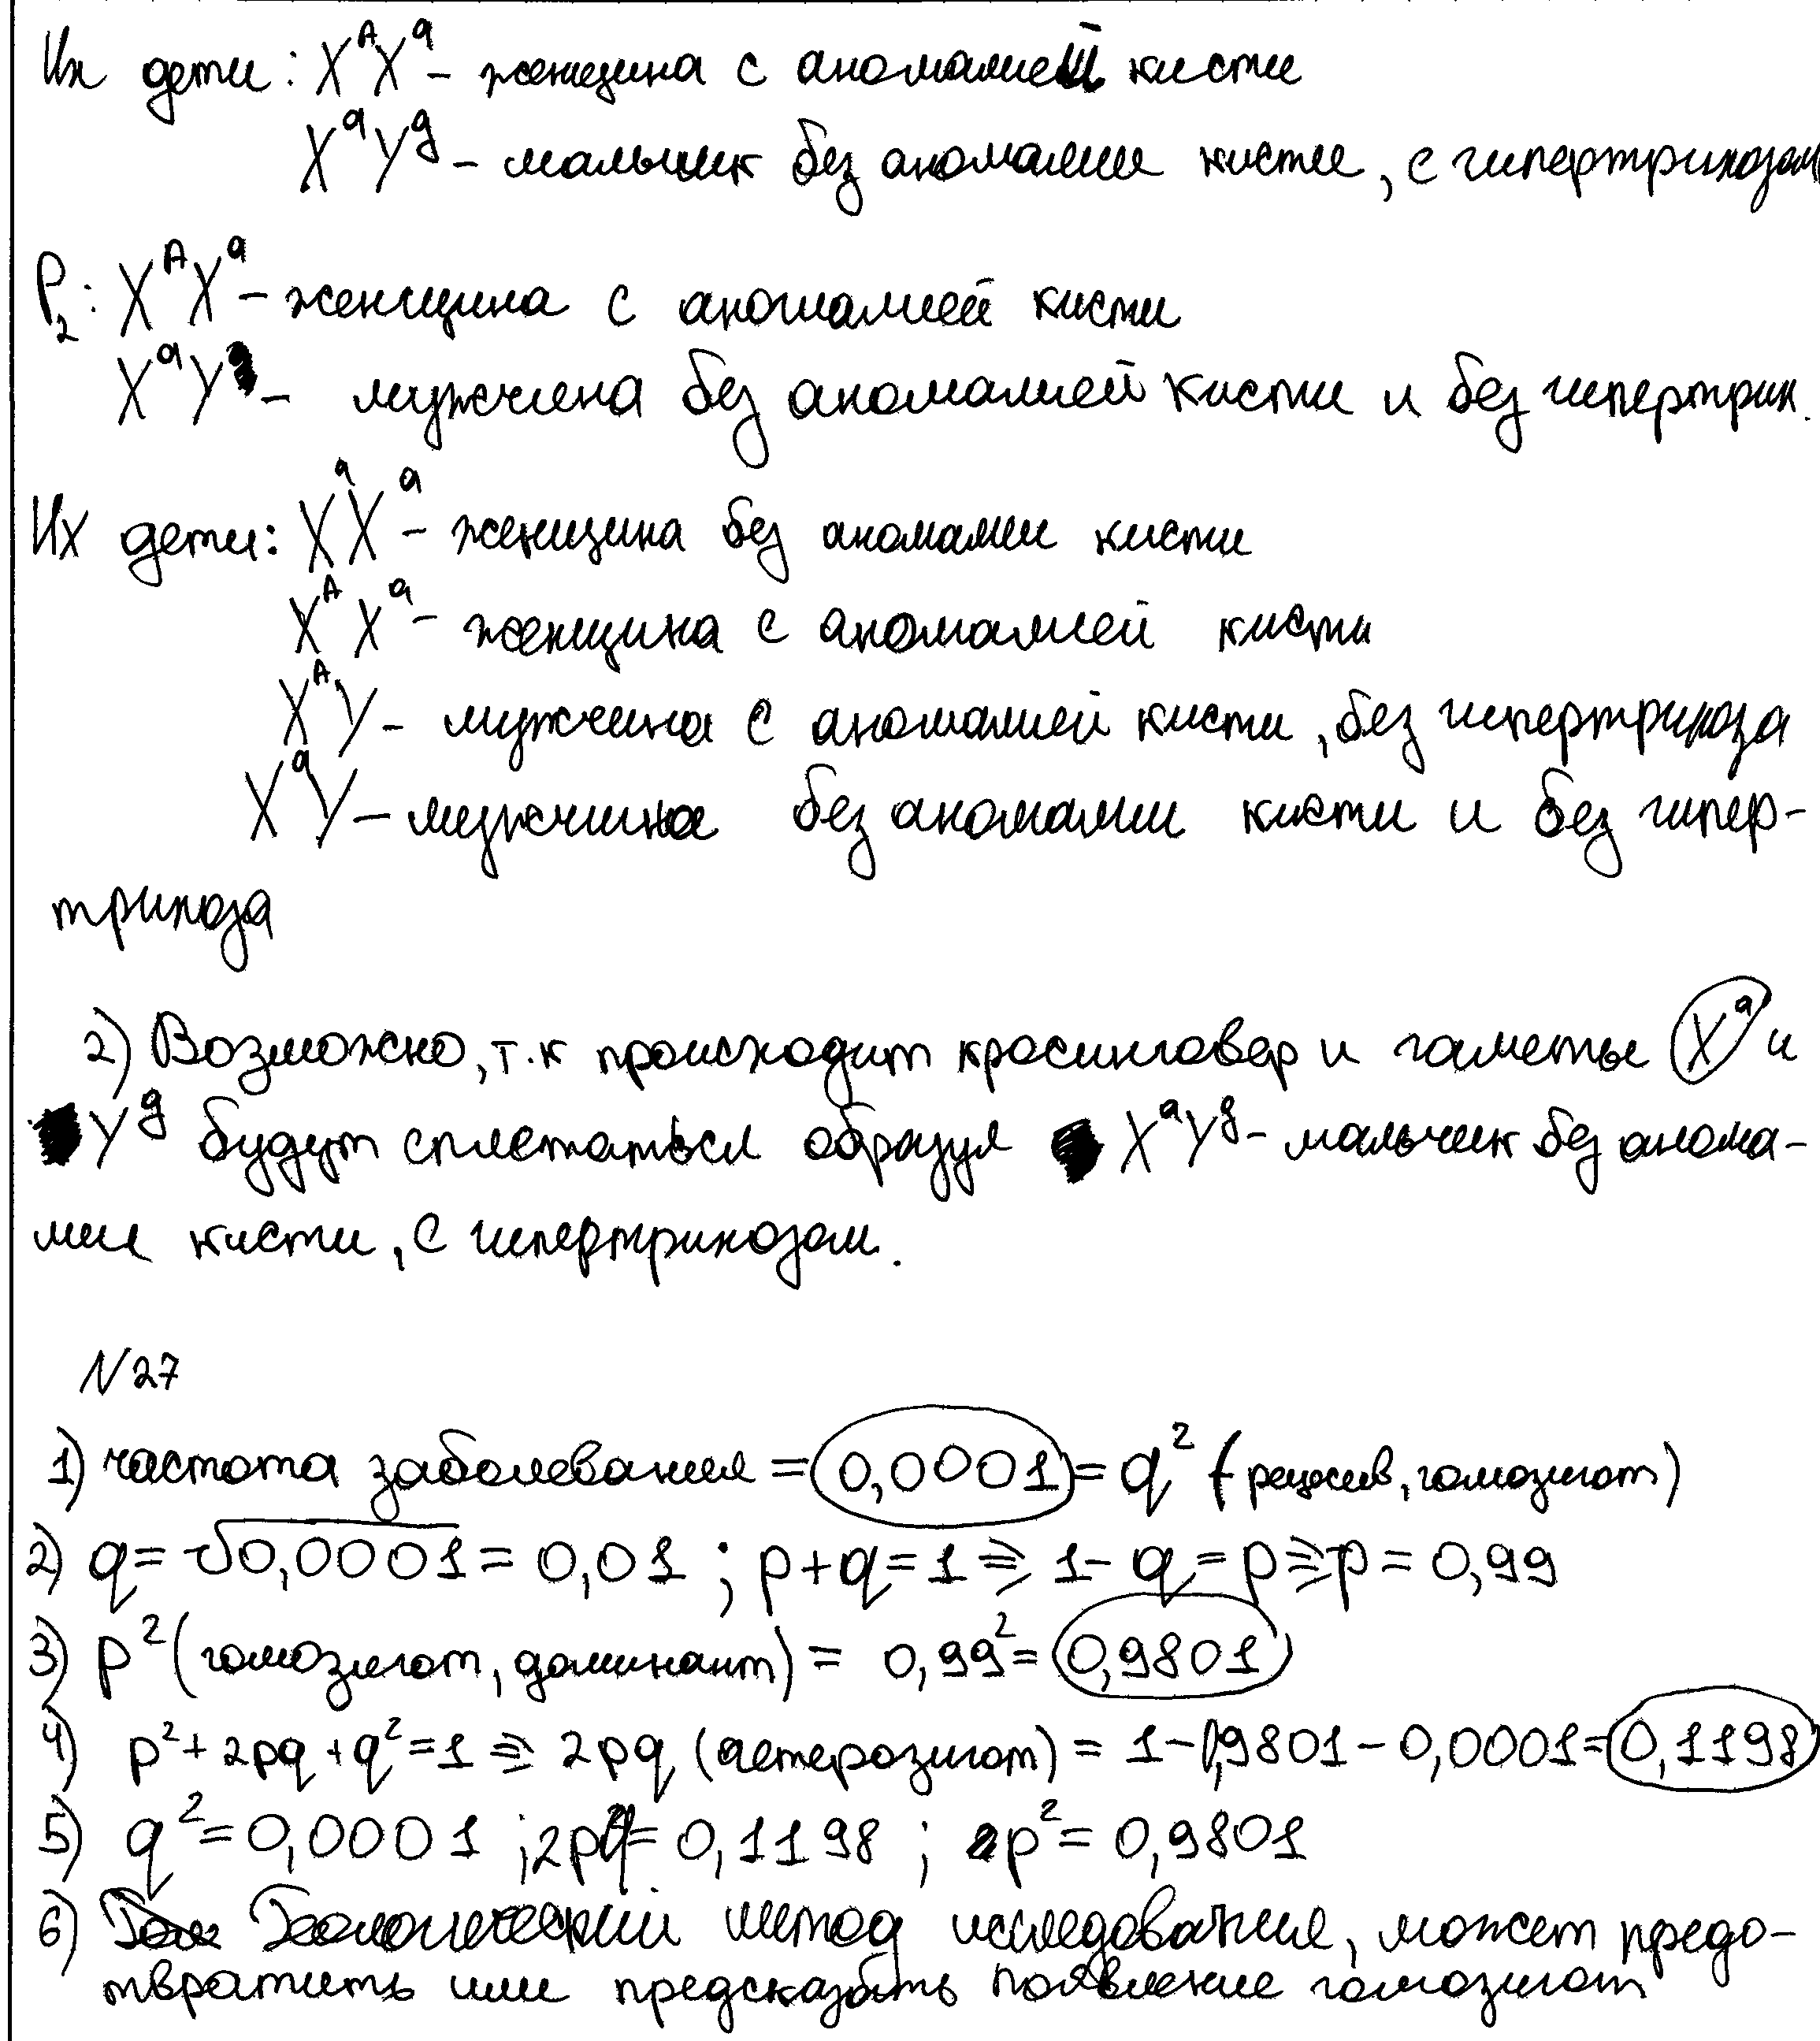 Их дети: X^A X^a – женщина с аномалией кисти
X^a Y^g – мальчик без аномалии кисти, с гипертрихозом
P₂: X^A X^a – женщина с аномалией кисти
X^a Y – мужчина без аномалией кисти и без гипертрих.
Их дети: X^a X^a – женщина без аномалии кисти
X^A X^a – женщина с аномалией кисти
X^A Y – мужчина с аномалией кисти, без гипертрихоза
X^a Y – мужчина без аномалии кисти и без гипер-
трихоза
2) Возможно, т.к происходит кросинговер и гаметы X^a и
Y^g будут сплетаться образуя X^a Y^g – мальчик без анома-
лии кисти, с гипертрихозом.
N27
1) частота заболевания = 0,0001 = q² (рецессив, гомозигот)
2) q = √0,0001 = 0,01 ; p + q = 1 => 1 - q = p => p = 0,99
3) p² (гомозигот, доминант) = 0,99² = 0,9801
4) p² + 2pq + q² = 1 => 2pq (гетерозигот) = 1 - 0,9801 - 0,0001 = 0,1198
5) q² = 0,0001 ; 2pq = 0,1198 ; p² = 0,9801
6) метод исследования, может предо-
твратить или предсказать появление гомозигот